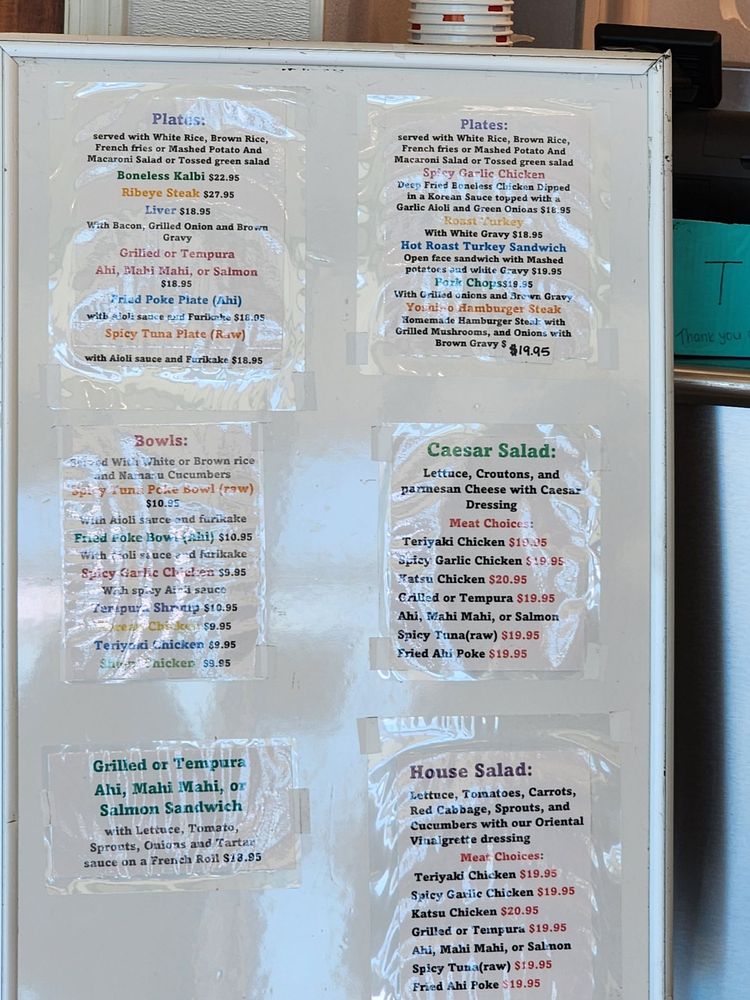 Plates:
served with White Rice, Brown Rice,
French fries or Mashed Potato And
Macaroni Salad or Tossed green salad
Boneless Kalbi $22.95
Ribeye Steak $27.95
Liver $18.95
With Bacon, Grilled Onion and Brown
Gravy
Grilled or Tempura
Ahi, Mahi Mahi, or Salmon
$18.95
Fried Poke Plate (Ahi)
with Aioli sauce and Furikake $18.95
Spicy Tuna Plate (Raw)
with Aioli sauce and Furikake $18.95
Plates:
served with White Rice, Brown Rice,
French fries or Mashed Potato And
Macaroni Salad or Tossed green salad
Spicy Garlic Chicken
Deep Fried Boneless Chicken Dipped
in a Korean Sauce topped with a
Garlic Aioli and Green Onions $18.95
Roast Turkey
With White Gravy $18.95
Hot Roast Turkey Sandwich
Open face sandwich with Mashed
potatoes and white Gravy $19.95
Pork Chops $19.95
With Grilled onions and Brown Gravy
Hamburger Steak
Homemade Hamburger Steak with
Grilled Mushrooms, and Onions with
Brown Gravy $ $19.95
Bowls:
Served With White or Brown rice
and Namasu Cucumbers
Spicy Tuna Poke Bowl (raw)
$10.95
With Aioli sauce and furikake
Fried Poke Bowl (Ahi) $10.95
With Aioli sauce and furikake
Spicy Garlic Chicken $9.95
With spicy Aioli sauce
Tempura Shrimp $10.95
Chicken $9.95
Teriyaki Chicken $9.95
Shoyu Chicken $9.95
Caesar Salad:
Lettuce, Croutons, and
parmesan Cheese with Caesar
Dressing
Meat Choices:
Teriyaki Chicken $19.95
Spicy Garlic Chicken $19.95
Katsu Chicken $20.95
Grilled or Tempura $19.95
Ahi, Mahi Mahi, or Salmon
Spicy Tuna(raw) $19.95
Fried Ahi Poke $19.95
Grilled or Tempura
Ahi, Mahi Mahi, or
Salmon Sandwich
with Lettuce, Tomato,
Sprouts, Onions and Tartar
sauce on a French Roll $18.95
House Salad:
Lettuce, Tomatoes, Carrots,
Red Cabbage, Sprouts, and
Cucumbers with our Oriental
Vinaigrette dressing
Meat Choices:
Teriyaki Chicken $19.95
Spicy Garlic Chicken $19.95
Katsu Chicken $20.95
Grilled or Tempura $19.95
Ahi, Mahi Mahi, or Salmon
Spicy Tuna(raw) $19.95
Fried Ahi Poke $19.95
T
Thank you